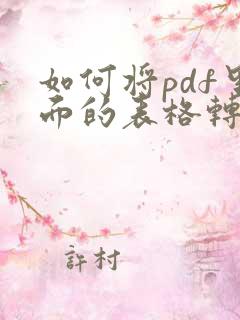 如何将pdf里
而的表格轉
許村